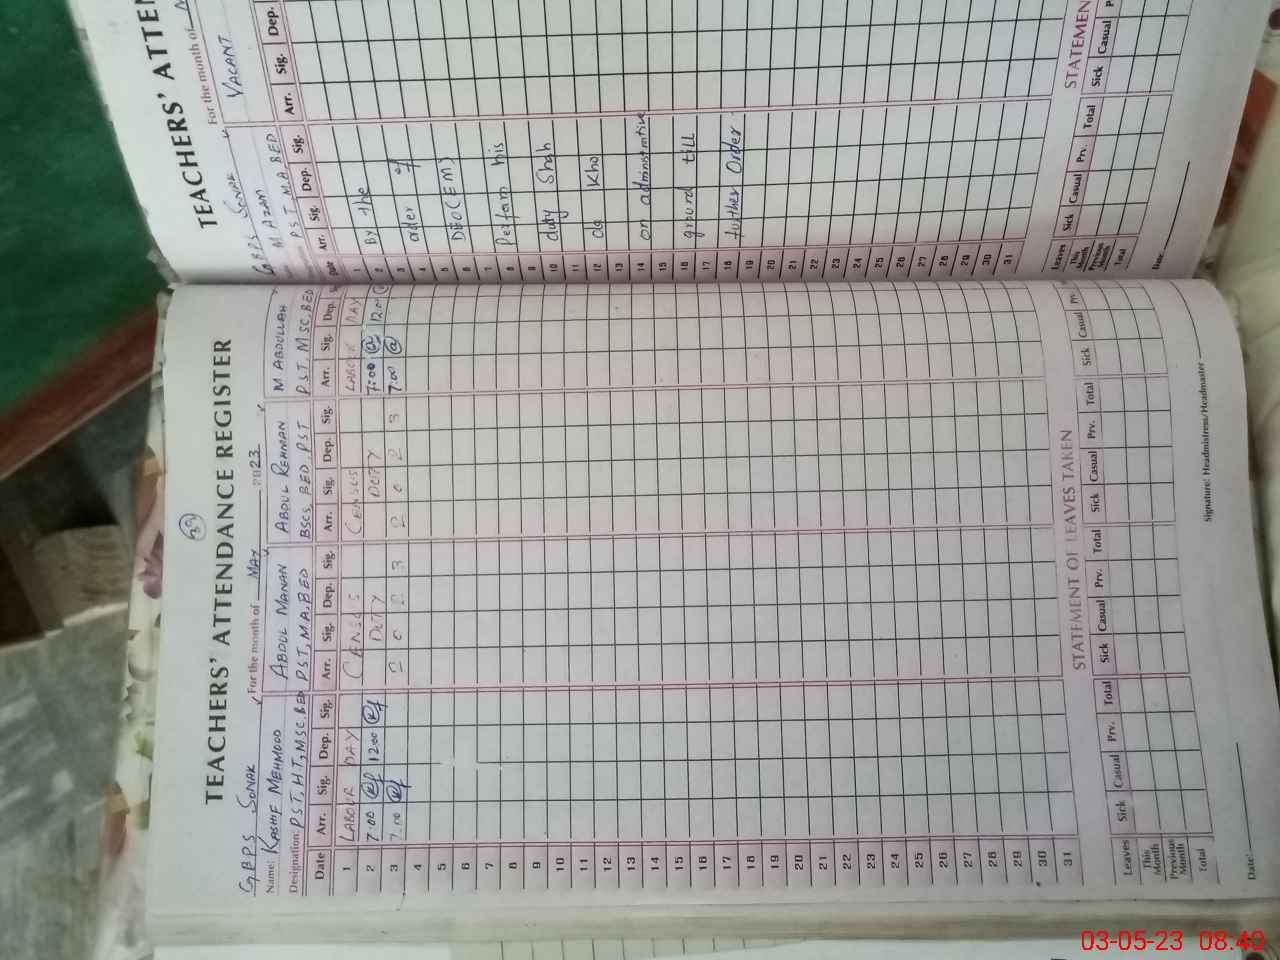 39
TEACHERS' ATTENDANCE REGISTER
G.B.P.S SONAK For the month of MAY 2023
Name: KASHIF MEHMOOD ABDUL MANAN ABDUL REHMAN M ABDULLAH
Designation: P.S.T, H.T, M.SC. B.ED P.S.T, M.A, B.ED BSCS, BED. PST P.S.T, M.SC, B.ED
Date Arr. Sig. Dep. Sig. Arr. Sig. Dep. Sig. Arr. Sig. Dep. Sig. Arr. Sig. Dep.
1 LABOUR DAY CENSUS CENSUS LABOUR DAY
2 7:00 12:00 DUTY DUTY 7:00 12:00
3 7:00 2 0 2 3 2 0 2 3 7:00
4
5
6
7
8
9
10
11
12
13
14
15
16
17
18
19
20
21
22
23
24
25
26
27
28
29
30
31
STATEMENT OF LEAVES TAKEN
Leaves Sick Casual Prv. Total Sick Casual Prv. Total Sick Casual Prv. Total Sick Casual Prv.
This Month
Previous Month
Total
Date: Signature: Headmistress/Headmaster
TEACHERS' ATTEN
G.B.P.S SONAK For the month of
M. AZAM VACANT
P.S.T M.A. B.ED
Date Arr. Sig. Dep. Sig. Arr. Sig. Dep.
1
2 By the
3
4 order of
5
6 DEO(EM)
7
8 Perform his
9
10 duty Shah
11
12 da Kho
13
14 on administrative
15
16 ground till
17
18 further Order
19
20
21
22
23
24
25
26
27
28
29
30
31
STATEMEN
Leaves Sick Casual Prv. Total Sick Casual
This Month
Previous Month
Total
Date:
03-05-23 08:40